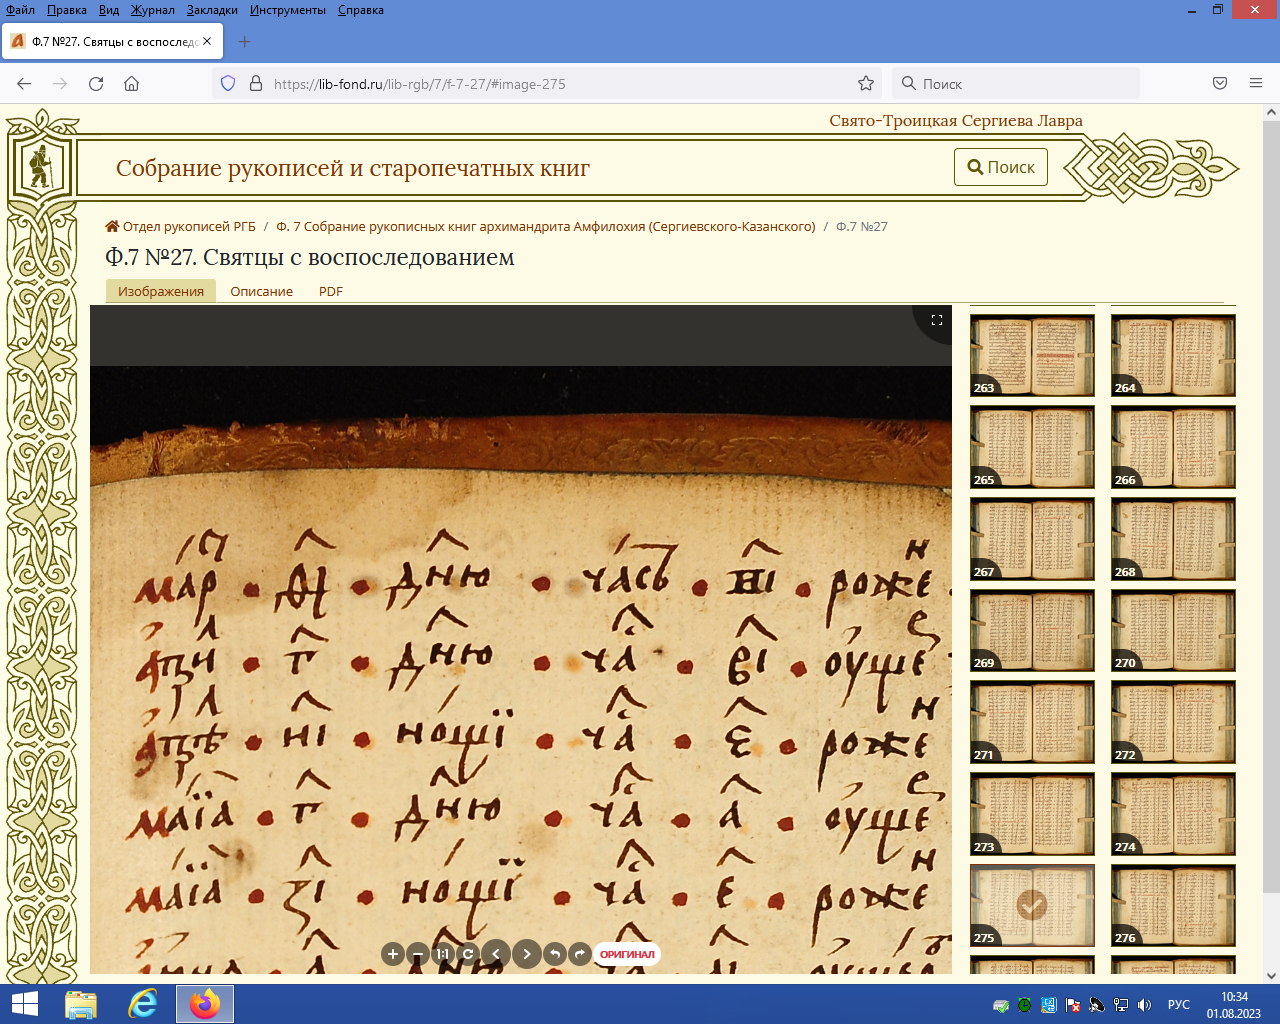 Файл Правка Вид Журнал Закладки Инструменты Справка
Ф.7 №27. Святцы с воспоследо
https://lib-fond.ru/lib-rgb/7/f-7-27/#image-275
Поиск
Свято-Троицкая Сергиева Лавра
Собрание рукописей и старопечатных книг
Поиск
Отдел рукописей РГБ / Ф. 7 Собрание рукописных книг архимандрита Амфилохия (Сергиевского-Казанского) / Ф.7 №27
Ф.7 №27. Святцы с воспоследованием
Изображения Описание PDF
дню • час • роже
апи • г • дню • ча • ві • оуще
апрѣ • ні • нощї • ча • є • роже
маїа • г • дню • ча • а • оуще
маїа • зі • нощї • ча • е • роже
263 264
265 266
267 268
269 270
271 272
273 274
275 276
1:1 ОРИГИНАЛ
РУС
10:34
01.08.2023